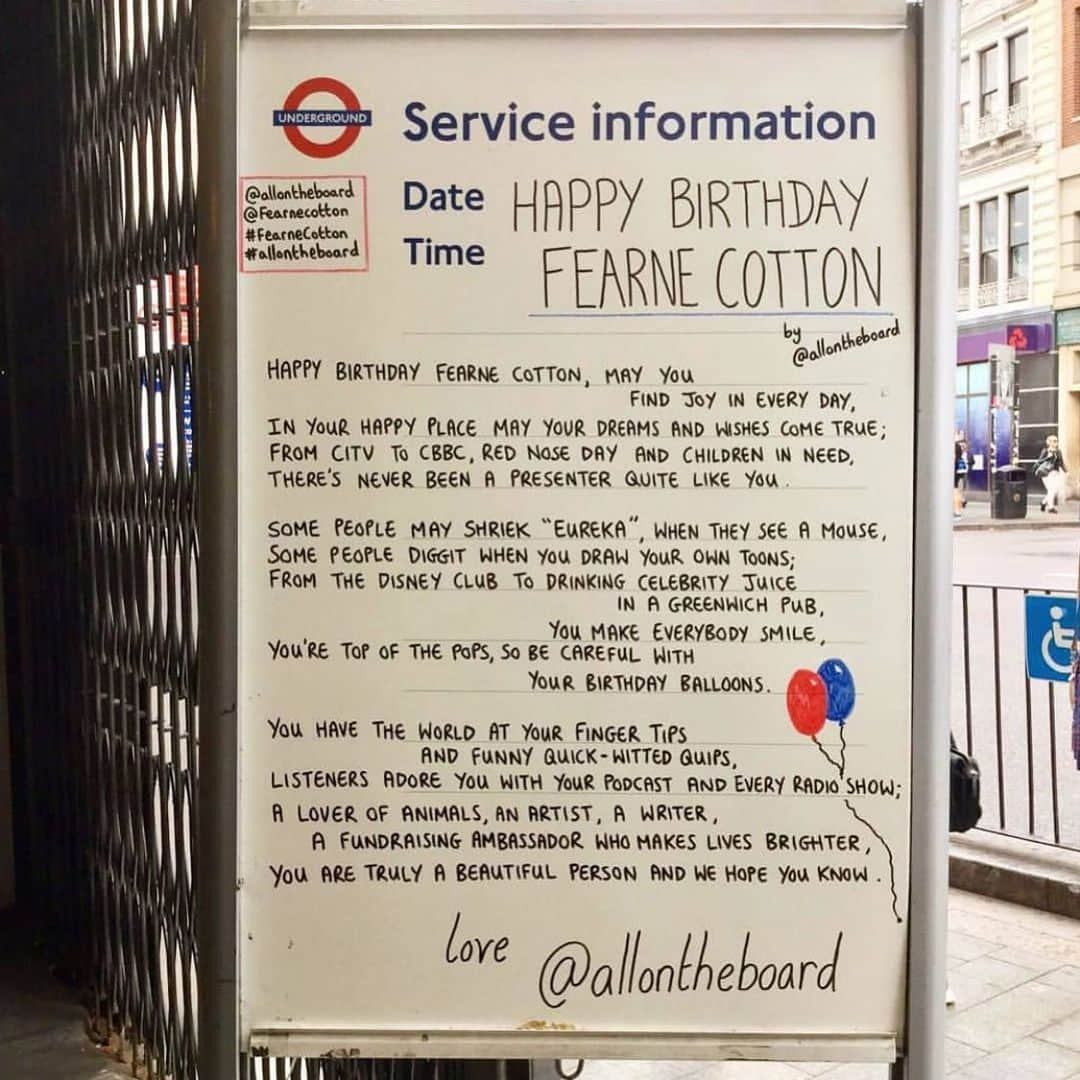 UNDERGROUND
Service information
@allontheboard
@Fearnecotton
#FearneCotton
#allontheboard
Date HAPPY BIRTHDAY
Time FEARNE COTTON
by
@allontheboard
HAPPY BIRTHDAY FEARNE COTTON, MAY YOU
FIND JOY IN EVERY DAY,
IN YOUR HAPPY PLACE MAY YOUR DREAMS AND WISHES COME TRUE;
FROM CITV TO CBBC, RED NOSE DAY AND CHILDREN IN NEED,
THERE'S NEVER BEEN A PRESENTER QUITE LIKE YOU.
SOME PEOPLE MAY SHRIEK "EUREKA", WHEN THEY SEE A MOUSE,
SOME PEOPLE DIGGIT WHEN YOU DRAW YOUR OWN TOONS;
FROM THE DISNEY CLUB TO DRINKING CELEBRITY JUICE
IN A GREENWICH PUB,
YOU MAKE EVERYBODY SMILE,
YOU'RE TOP OF THE POPS, SO BE CAREFUL WITH
YOUR BIRTHDAY BALLOONS.
YOU HAVE THE WORLD AT YOUR FINGER TIPS
AND FUNNY QUICK-WITTED QUIPS,
LISTENERS ADORE YOU WITH YOUR PODCAST AND EVERY RADIO SHOW;
A LOVER OF ANIMALS, AN ARTIST, A WRITER,
A FUNDRAISING AMBASSADOR WHO MAKES LIVES BRIGHTER,
YOU ARE TRULY A BEAUTIFUL PERSON AND WE HOPE YOU KNOW.
love @allontheboard